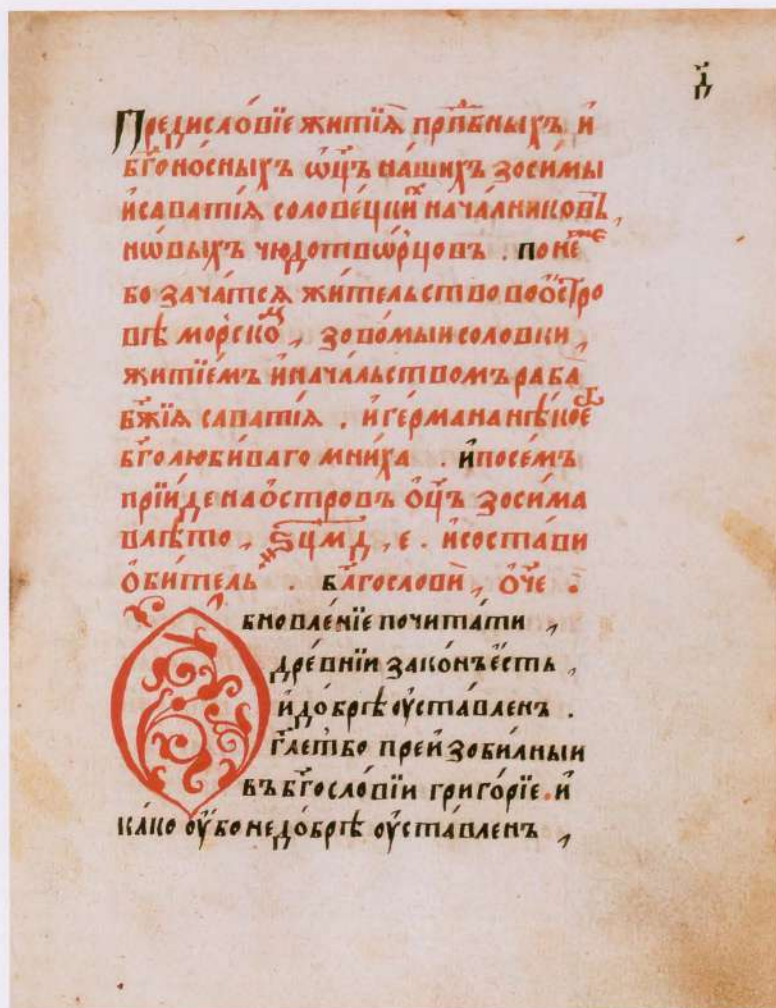 д҃
Предисло́вїе житїѧ̀ прпⷣбныхъ и҆
бг҃оно́сныхъ ѡ҆ц҃ъ на́шихъ зосимы
и҆саватїѧ соловѣ́цкиⷯ нача́лниковъ,
но́выхъ чюдотво́рцовъ . поне
бо зача́тсѧ жи́тельство воо́стро
вѣ морско́ⷨ, зово́мыи соловки,
житїе́мъ и҆нача́льствомъ раба
бж҃їѧ саватїѧ . и҆ге́рмана нѣ́кое
бг҃олюби́ваго мни́ха . и҆посе́мъ
прїи́де нао́стровъ ѻ҆ц҃ъ зоси́ма
влѣ́то , ѕ҃цмд , е . и҆состави
ѻ҆би́тель . бл҃гослови̑ , ѻ҆́ч҃е .
Ѻ҆бновле́нїе почита́ти ,
дре́внїи зако́нъ є҆́сть ,
и҆до́брѣ оу҆ста́вленъ .
гл҃етбо преи҆зоби́лныи
въбг҃осло́вїи григо́рїе . и҆
ка́ко оу҆́бо недо́брѣ оу҆ста́вленъ ,